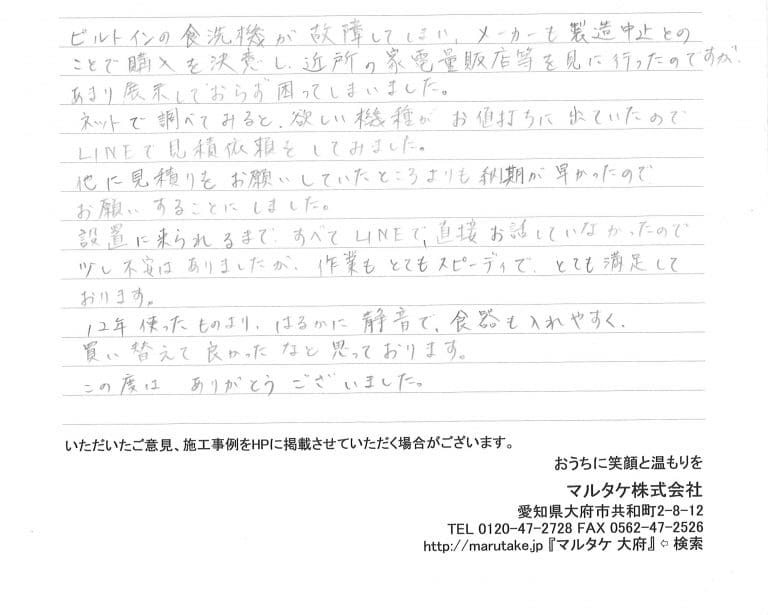 ビルトインの食洗機が故障してしまい、メーカーも製造中止との
ことで購入を決意し、近所の家電量販店等を見に行ったのですが、
あまり展示しておらず困ってしまいました。
ネットで調べてみると、欲しい機種がお値打ちに出ていたので
LINEで見積依頼をしてみました。
他に見積りをお願いしていたところよりも納期が早かったので
お願いすることにしました。
設置に来られるまで、すべてLINEで、直接お話していなかったので
少し不安はありましたが、作業もとてもスピーディで、とても満足して
おります。
12年使ったものより、はるかに静音で、食器も入れやすく、
買い替えて良かったなと思っております。
この度はありがとうございました。
いただいたご意見、施工事例をHPに掲載させていただく場合がございます。
おうちに笑顔と温もりを
マルタケ株式会社
愛知県大府市共和町2-8-12
TEL 0120-47-2728 FAX 0562-47-2526
http://marutake.jp『マルタケ 大府』⇦ 検索